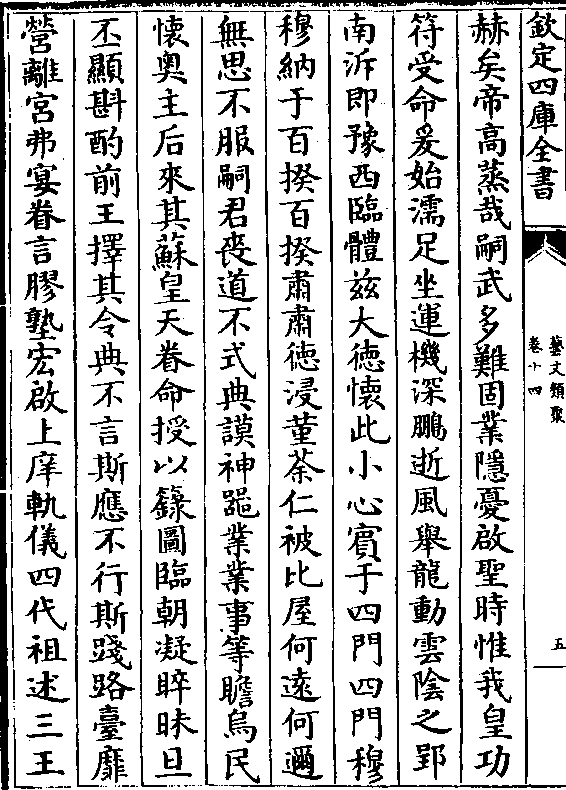 欽定四庫全書
藝文類聚
卷十四
五
赫矣帝高蒸哉嗣武多難固業隱憂啟聖時惟我皇功
符受命爰始濡足坐運機深鵬逝風舉龍動雲陰之郢
南泝即豫西臨體兹大德懷此小心賓于四門四門穆
穆納于百揆百揆肅肅德浸萐荼仁被比屋何遠何邇
無思不服嗣君喪道不式典謨神噐業業事等瞻烏民
懷奥主后來其蘇皇天眷命授以籙圖臨朝凝睟昧旦
丕顯斟酌前王擇其令典不言斯應不行斯踐路臺靡
營離宮弗宴眷言膠塾宏啟上庠軌儀四代祖述三王